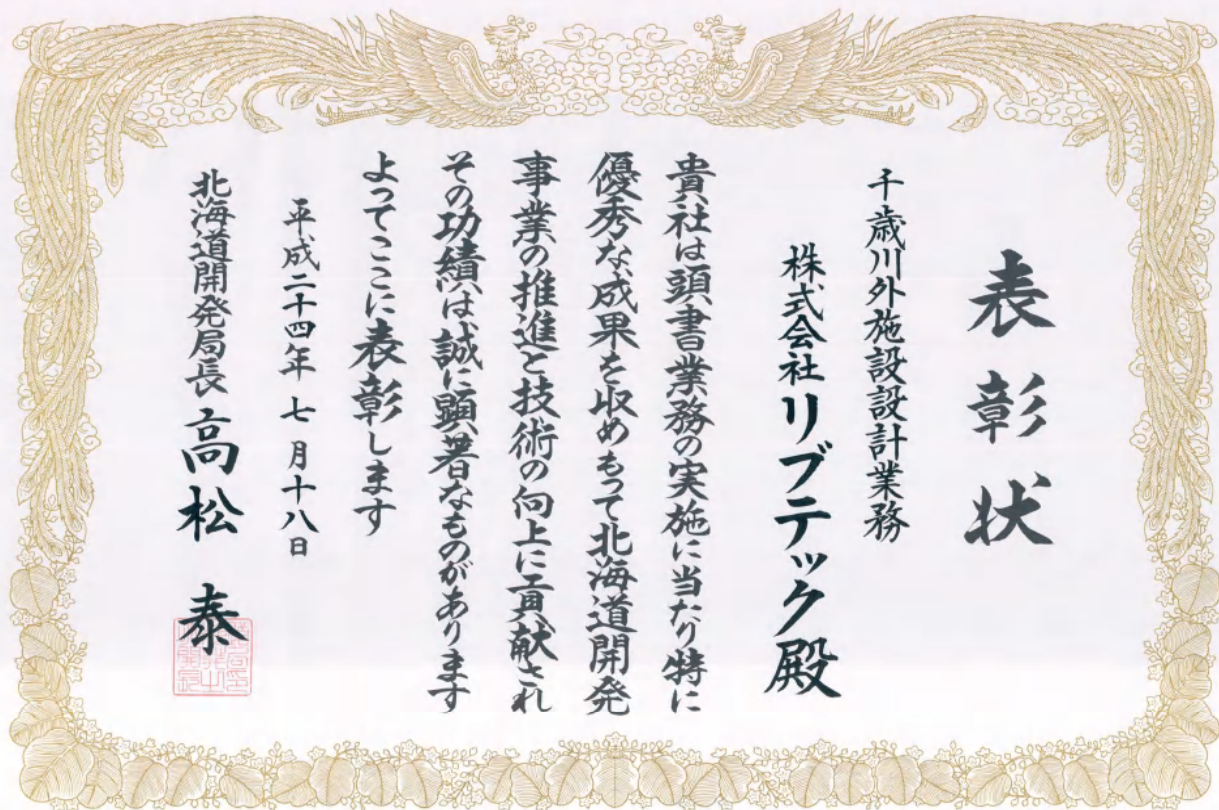 表彰状
千歳川外施設設計業務
株式会社リブテック殿
貴社は頭書業務の実施に当たり特に
優秀な成果を収めもって北海道開発
事業の推進と技術の向上に貢献され
その功績は誠に顕著なものがあります
よってここに表彰します
平成二十四年七月十八日
北海道開発局長 高松 泰